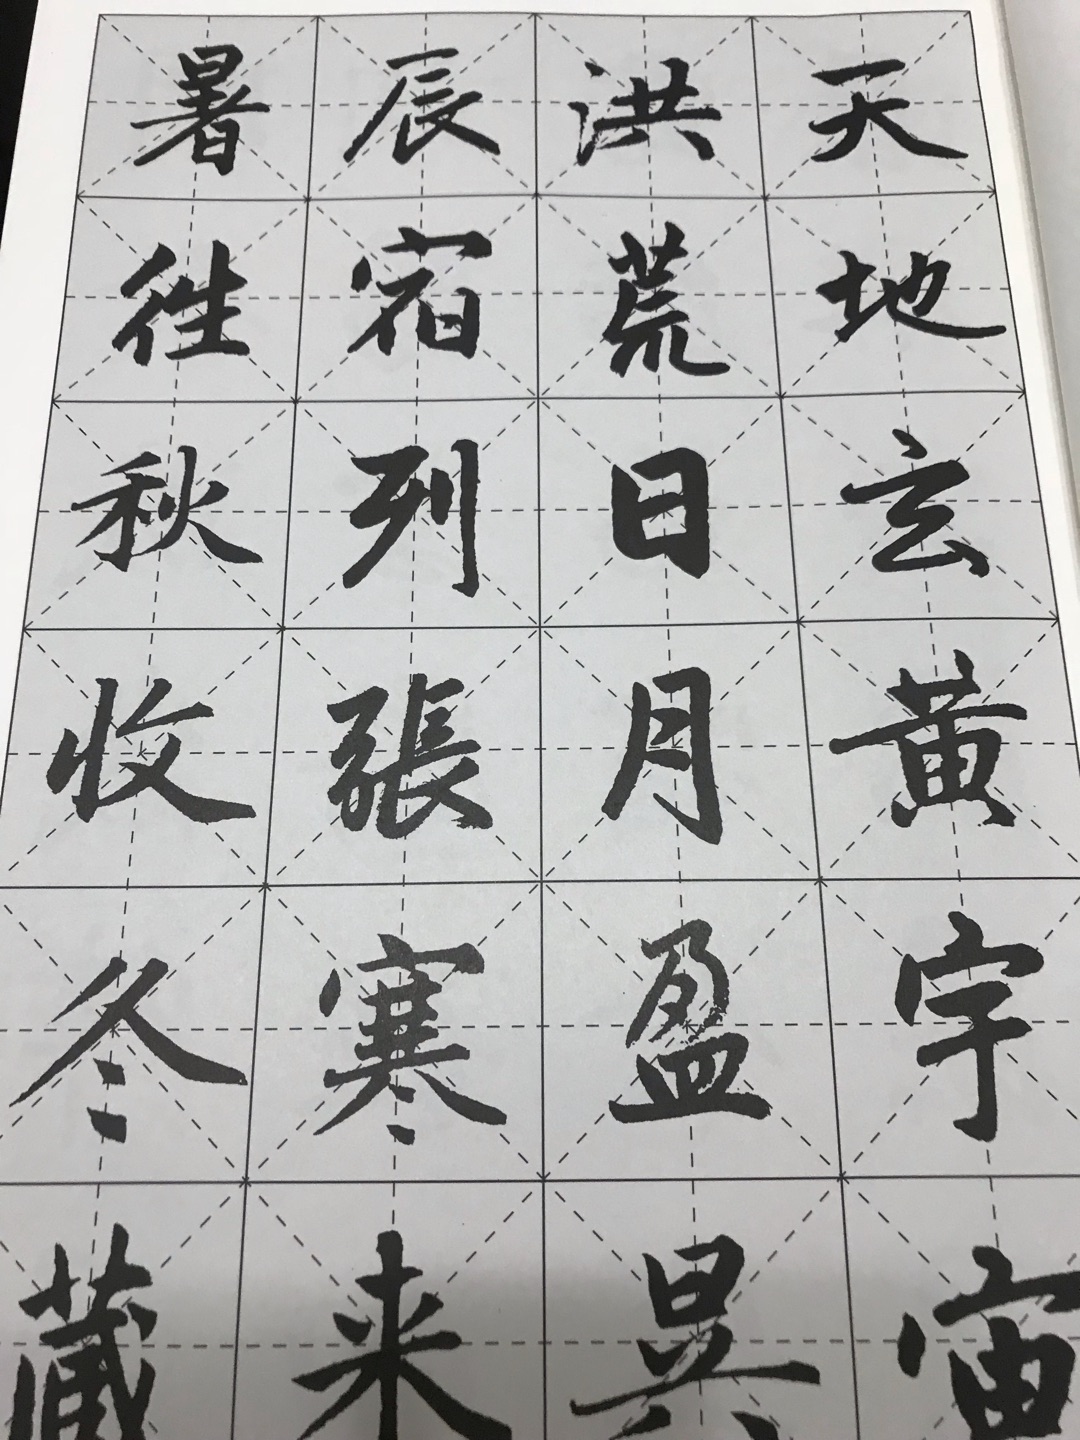 天地玄黄宇宙
洪荒日月盈昃
辰宿列張寒来
暑往秋收冬藏